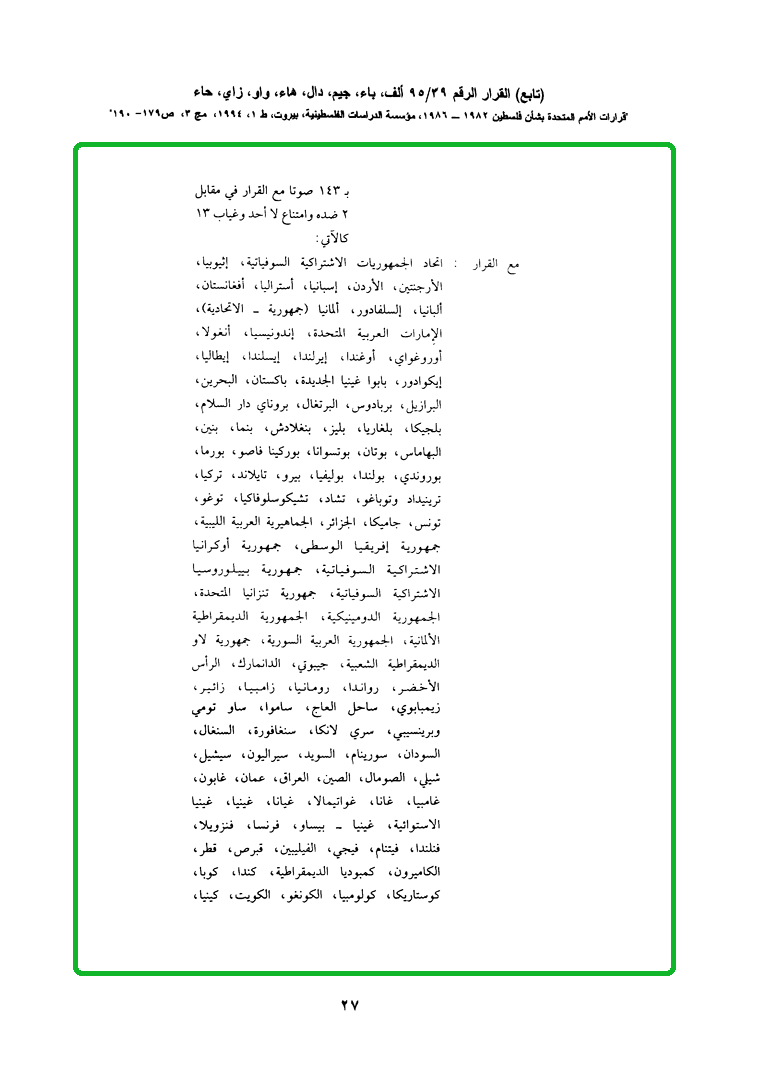 (تابع) القرار الرقم ٩٥/٣٩ ألف، باء، جيم، دال، هاء، واو، زاي، حاء
"قرارات الأمم المتحدة بشأن فلسطين ١٩٨٢ — ١٩٨٦، مؤسسة الدراسات الفلسطينية، بيروت، ط ١، ١٩٩٤، مج ٣، ص١٧٩- ١٩٠"
بـ ١٤٣ صوتا مع القرار في مقابل
٢ ضده وامتناع لا أحد وغياب ١٣
كالآتي:
مع القرار : اتحاد الجمهوريات الاشتراكية السوفياتية، إثيوبيا،
الأرجنتين، الأردن، إسبانيا، أستراليا، أفغانستان،
ألبانيا، إلسلفادور، ألمانيا (جمهورية ـ الاتحادية)،
الإمارات العربية المتحدة، إندونيسيا، أنغولا،
أوروغواي، أوغندا، إيرلندا، إيسلندا، إيطاليا،
إيكوادور، بابوا غينيا الجديدة، باكستان، البحرين،
البرازيل، بربادوس، البرتغال، بروناي دار السلام،
بلجيكا، بلغاريا، بليز، بنغلادش، بنما، بنين،
البهاماس، بوتان، بوتسوانا، بوركينا فاصو، بورما،
بوروندي، بولندا، بوليفيا، بيرو، تايلاند، تركيا،
ترينيداد وتوباغو، تشاد، تشيكوسلوفاكيا، توغو،
تونس، جاميكا، الجزائر، الجماهيرية العربية الليبية،
جمهورية إفريقيا الوسطى، جمهورية أوكرانيا
الاشتراكية السوفياتية، جمهورية بييلوروسيا
الاشتراكية السوفياتية، جمهورية تنزانيا المتحدة،
الجمهورية الدومينيكية، الجمهورية الديمقراطية
الألمانية، الجمهورية العربية السورية، جمهورية لاو
الديمقراطية الشعبية، جيبوتي، الدانمارك، الرأس
الأخضر، رواندا، رومانيا، زامبيا، زائير،
زيمبابوي، ساحل العاج، ساموا، ساو تومي
وبرينسيبي، سري لانكا، سنغافورة، السنغال،
السودان، سورينام، السويد، سيراليون، سيشيل،
شيلي، الصومال، الصين، العراق، عمان، غابون،
غامبيا، غانا، غواتيمالا، غيانا، غينيا، غينيا
الاستوائية، غينيا ـ بيساو، فرنسا، فنزويلا،
فنلندا، فيتنام، فيجي، الفيليبين، قبرص، قطر،
الكاميرون، كمبوديا الديمقراطية، كندا، كوبا،
كوستاريكا، كولومبيا، الكونغو، الكويت، كينيا،
٢٧